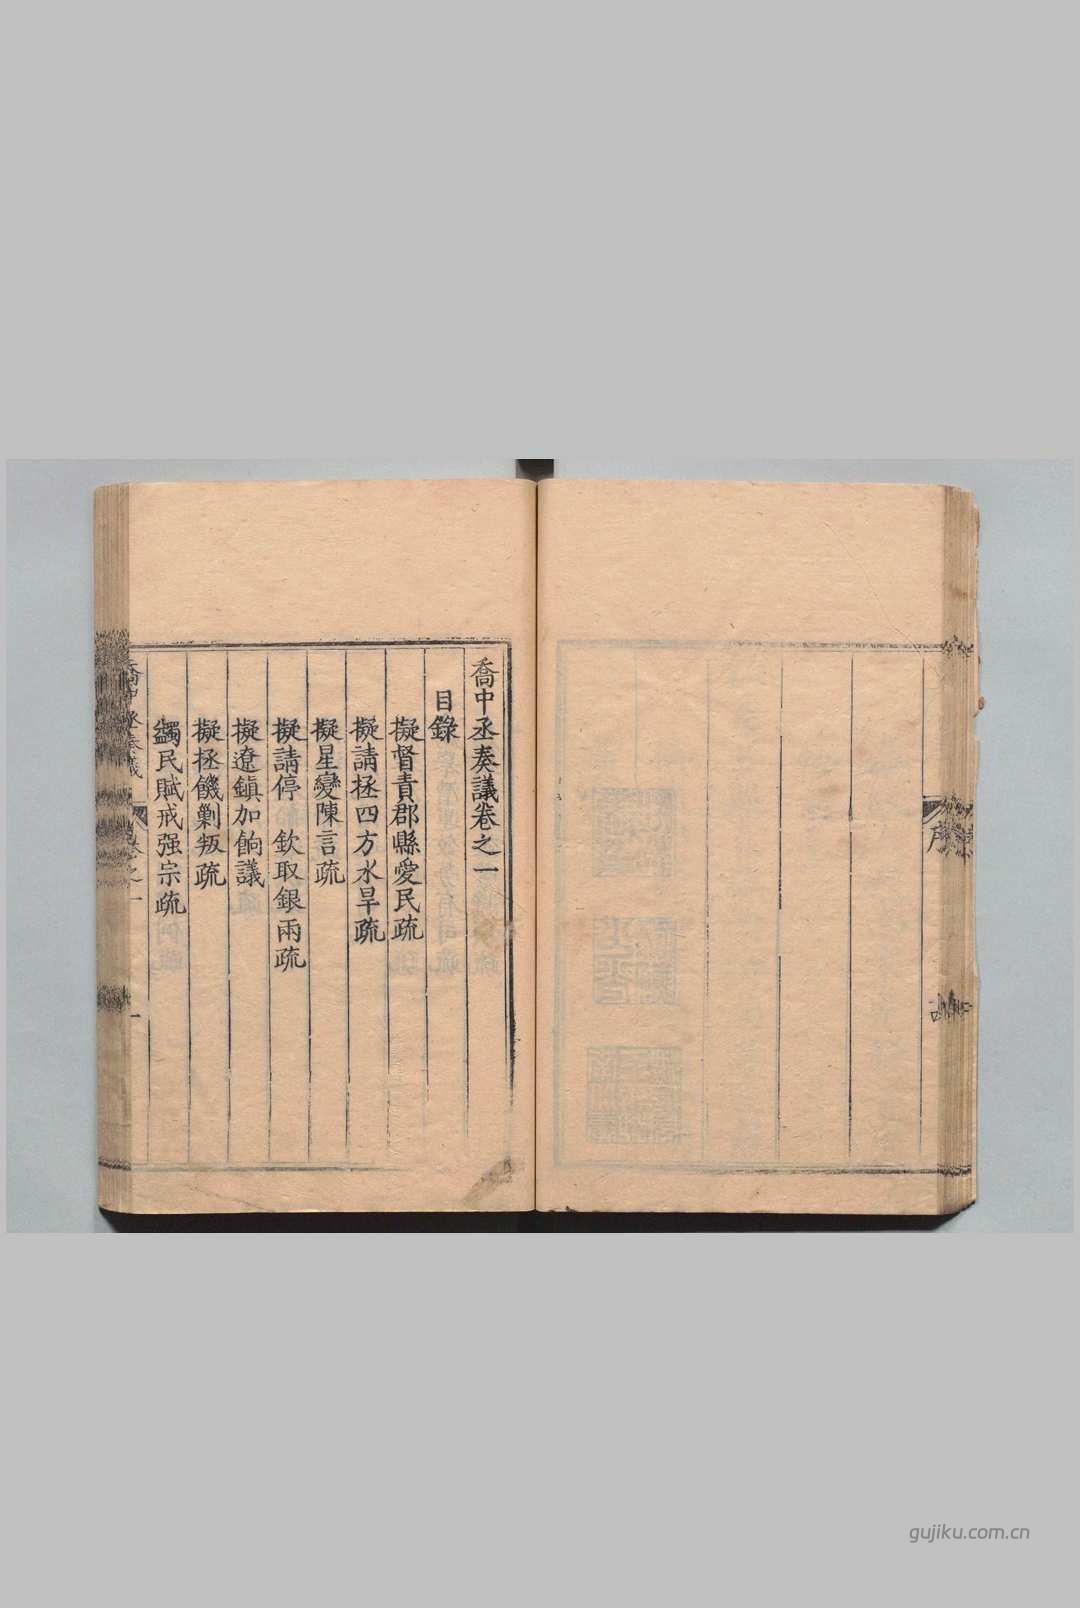 序
喬中丞奏議卷之一
目錄
擬督責郡縣愛民疏
擬請拯四方水旱疏
擬星變陳言疏
擬請停 欽取銀兩疏
擬遼鎮加餉議
擬拯饑剿叛疏
蠲民賦戒强宗疏
喬中丞奏議
卷之一
一
gujiku.com.cn